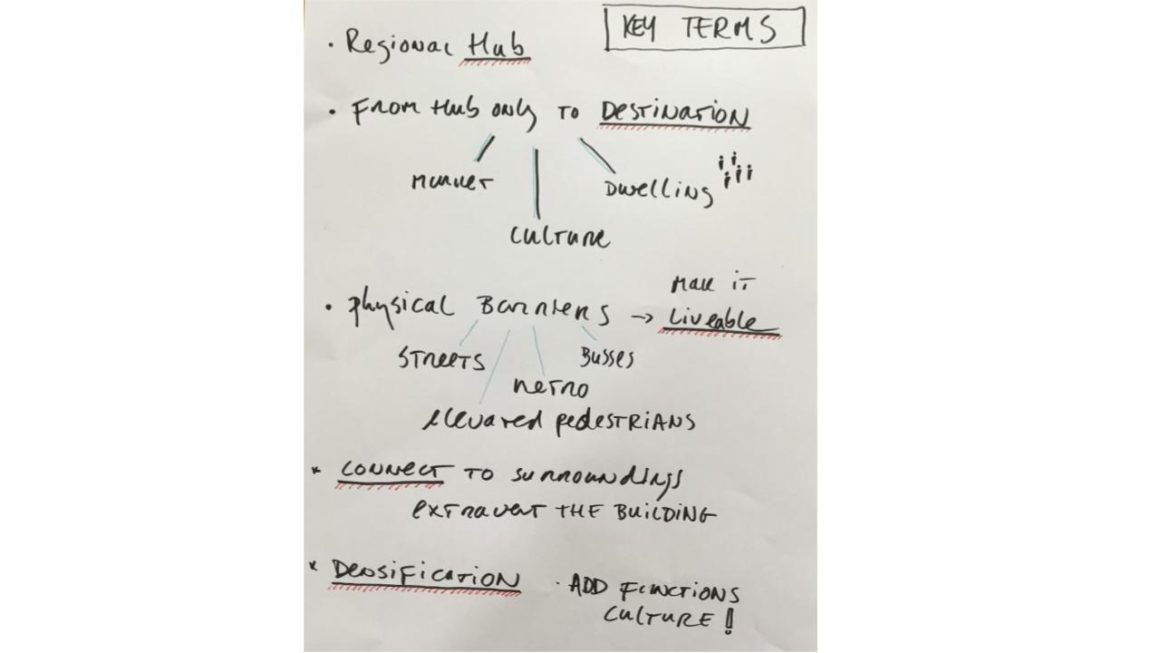 KEY TERMS
· Regional Hub
· From Hub only to DESTINATION
Market
Dwelling
Culture
· physical Barriers → Make it Liveable
Streets
Busses
Metro
elevated pedestrians
* Connect to surroundings
extravert THE BUILDING
* Densification · ADD Functions
CULTURE!